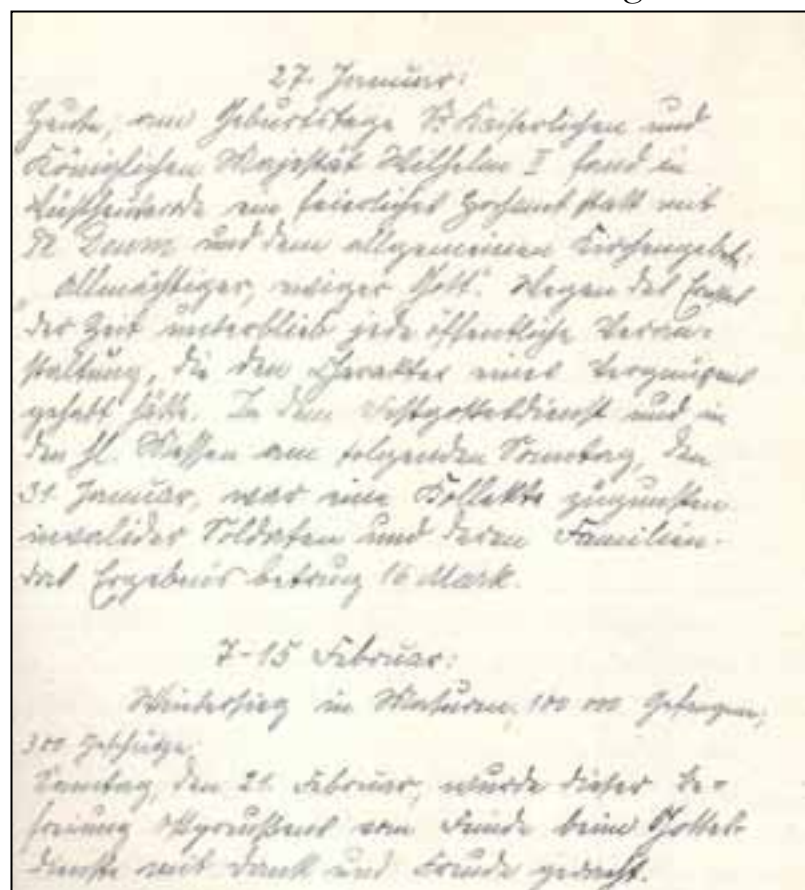 27. Januar:
Heute, am Geburtstage Sr. Kaiserlichen und
Königlichen Majestät Wilhelm II fand in
Wüstheuterode ein feierliches Hochamt statt mit
Te Deum und dem allgemeinen Kirchengebet:
„Allmächtiger, ewiger Gott". Wegen des Ernstes
der Zeit unterblieb jede öffentliche Veran-
staltung, die den Charakter eines Vergnügens
gehabt hätte. In dem Festgottesdienst und in
den hl. Messen am folgenden Sonntag, den
31. Januar, war eine Kollekte zugunsten
invalider Soldaten und deren Familien.
das Ergebnis betrug 16 Mark.
7-15 Februar:
Wintersieg in Masuren, 100 000 Gefangene,
300 Geschütze.
Sonntag, den 21. Februar, wurde dieser Be-
freiung Ostpreußens vom Feinde beim Gottes-
dienste mit Dank und Freude gedacht.